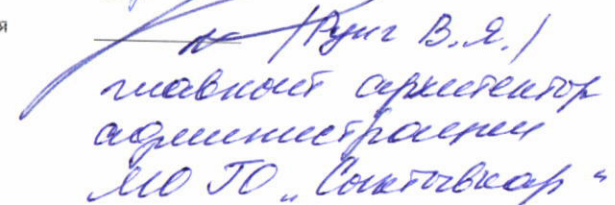 й
/Рунг В.Я./
главный архитектор
администрации
МО ГО „Сыктывкар“